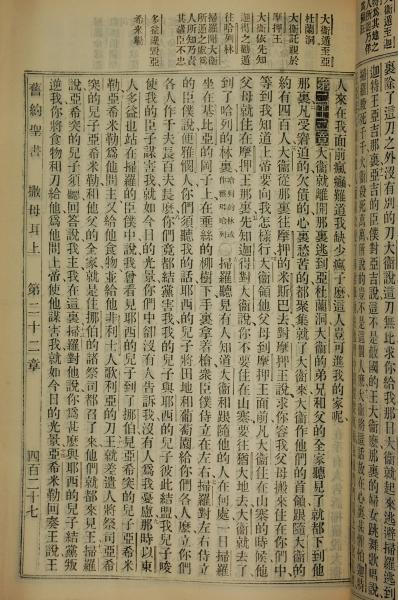 除了這刀之外沒有別的刀大衛說這刀無比求你給我那日大衛就起來逃避掃羅逃到
迦特王亞吉那裏亞吉的臣僕對亞吉說這不是敵國的王大衛麼那裏的婦女跳舞歌唱說
大衛逃至亞
杜蘭洞
大衛託親於
摩押王
大衛依先知
迦得之勸遁
往哈列林
人來在我面前瘋癲難道我缺少瘋子麼這人豈可進我的家呢
第二十二章 大衛就離開那裏逃到亞杜蘭洞大衛的弟兄和父的全家聽見了就都下到他
那裏凡受窘迫的欠債的心裏愁苦的都衆集就了大衛來大衛作他們的首領跟隨大衛的
約有四百人大衛從那裏往摩押的米斯巴去對摩押王說求你容我父母搬來住在你們中
等到我知道上帝要向我怎樣行大衛領他父母到摩押王面前凡大衛住在山寨的時候他
父母就住在摩押王那裏先知迦得對大衛說你不要住在山寨要往猶大地去大衛就去了
到了哈列的林裏掃羅聽見有人知道大衛和跟隨他的人在何處一日掃羅
坐在基比亞的岡子上在垂絲的柳樹下手裏拿著槍衆臣僕侍立在左右掃羅對左右侍立
的臣僕說便雅憫人你們須聽我的話耶西的兒子將田地和葡萄園給你們各人麼立你們
各人作千夫長百夫長麼你們竟都結黨害我我的兒子與耶西的兒子彼此結盟我兒子唆
使我的臣子謀害我就如今日的光景你們中卻沒有人告訴我沒有人爲我憂慮那時以東
人多益也站在掃羅的臣僕中說我曾看見耶西的兒子到了挪伯見亞希突的兒子亞希米
勒亞希米勒爲他問主又給他食物並給他非利士人歌利亞的刀王就差遣人將祭司亞希
突的兒子亞希米勒和他父的全家就是住挪伯的諸祭司都召了來他們就都來見王掃羅
說亞希突的兒子須聽回答說我主我在這裏掃羅對他說你爲甚麼與耶西的兒子結黨叛
逆我你將食物和刀給他爲他問上帝使他謀害我就如今日的光景亞希米勒回奏王說王
舊約聖書 撒母耳上 第二十二章 四百二十七